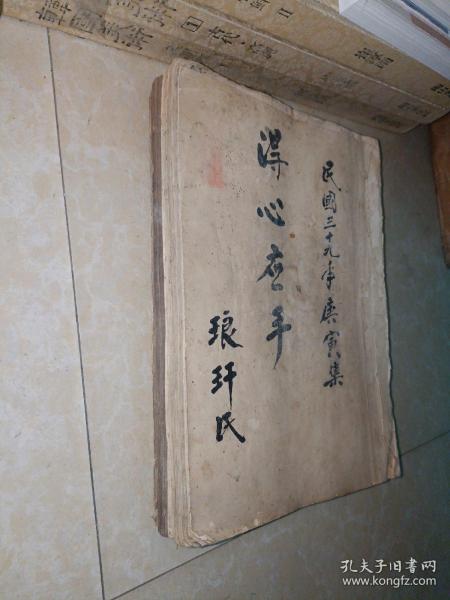 民國三十九年庚寅集
得心应手
琅玕氏
孔夫子旧书网
www.kongfz.com